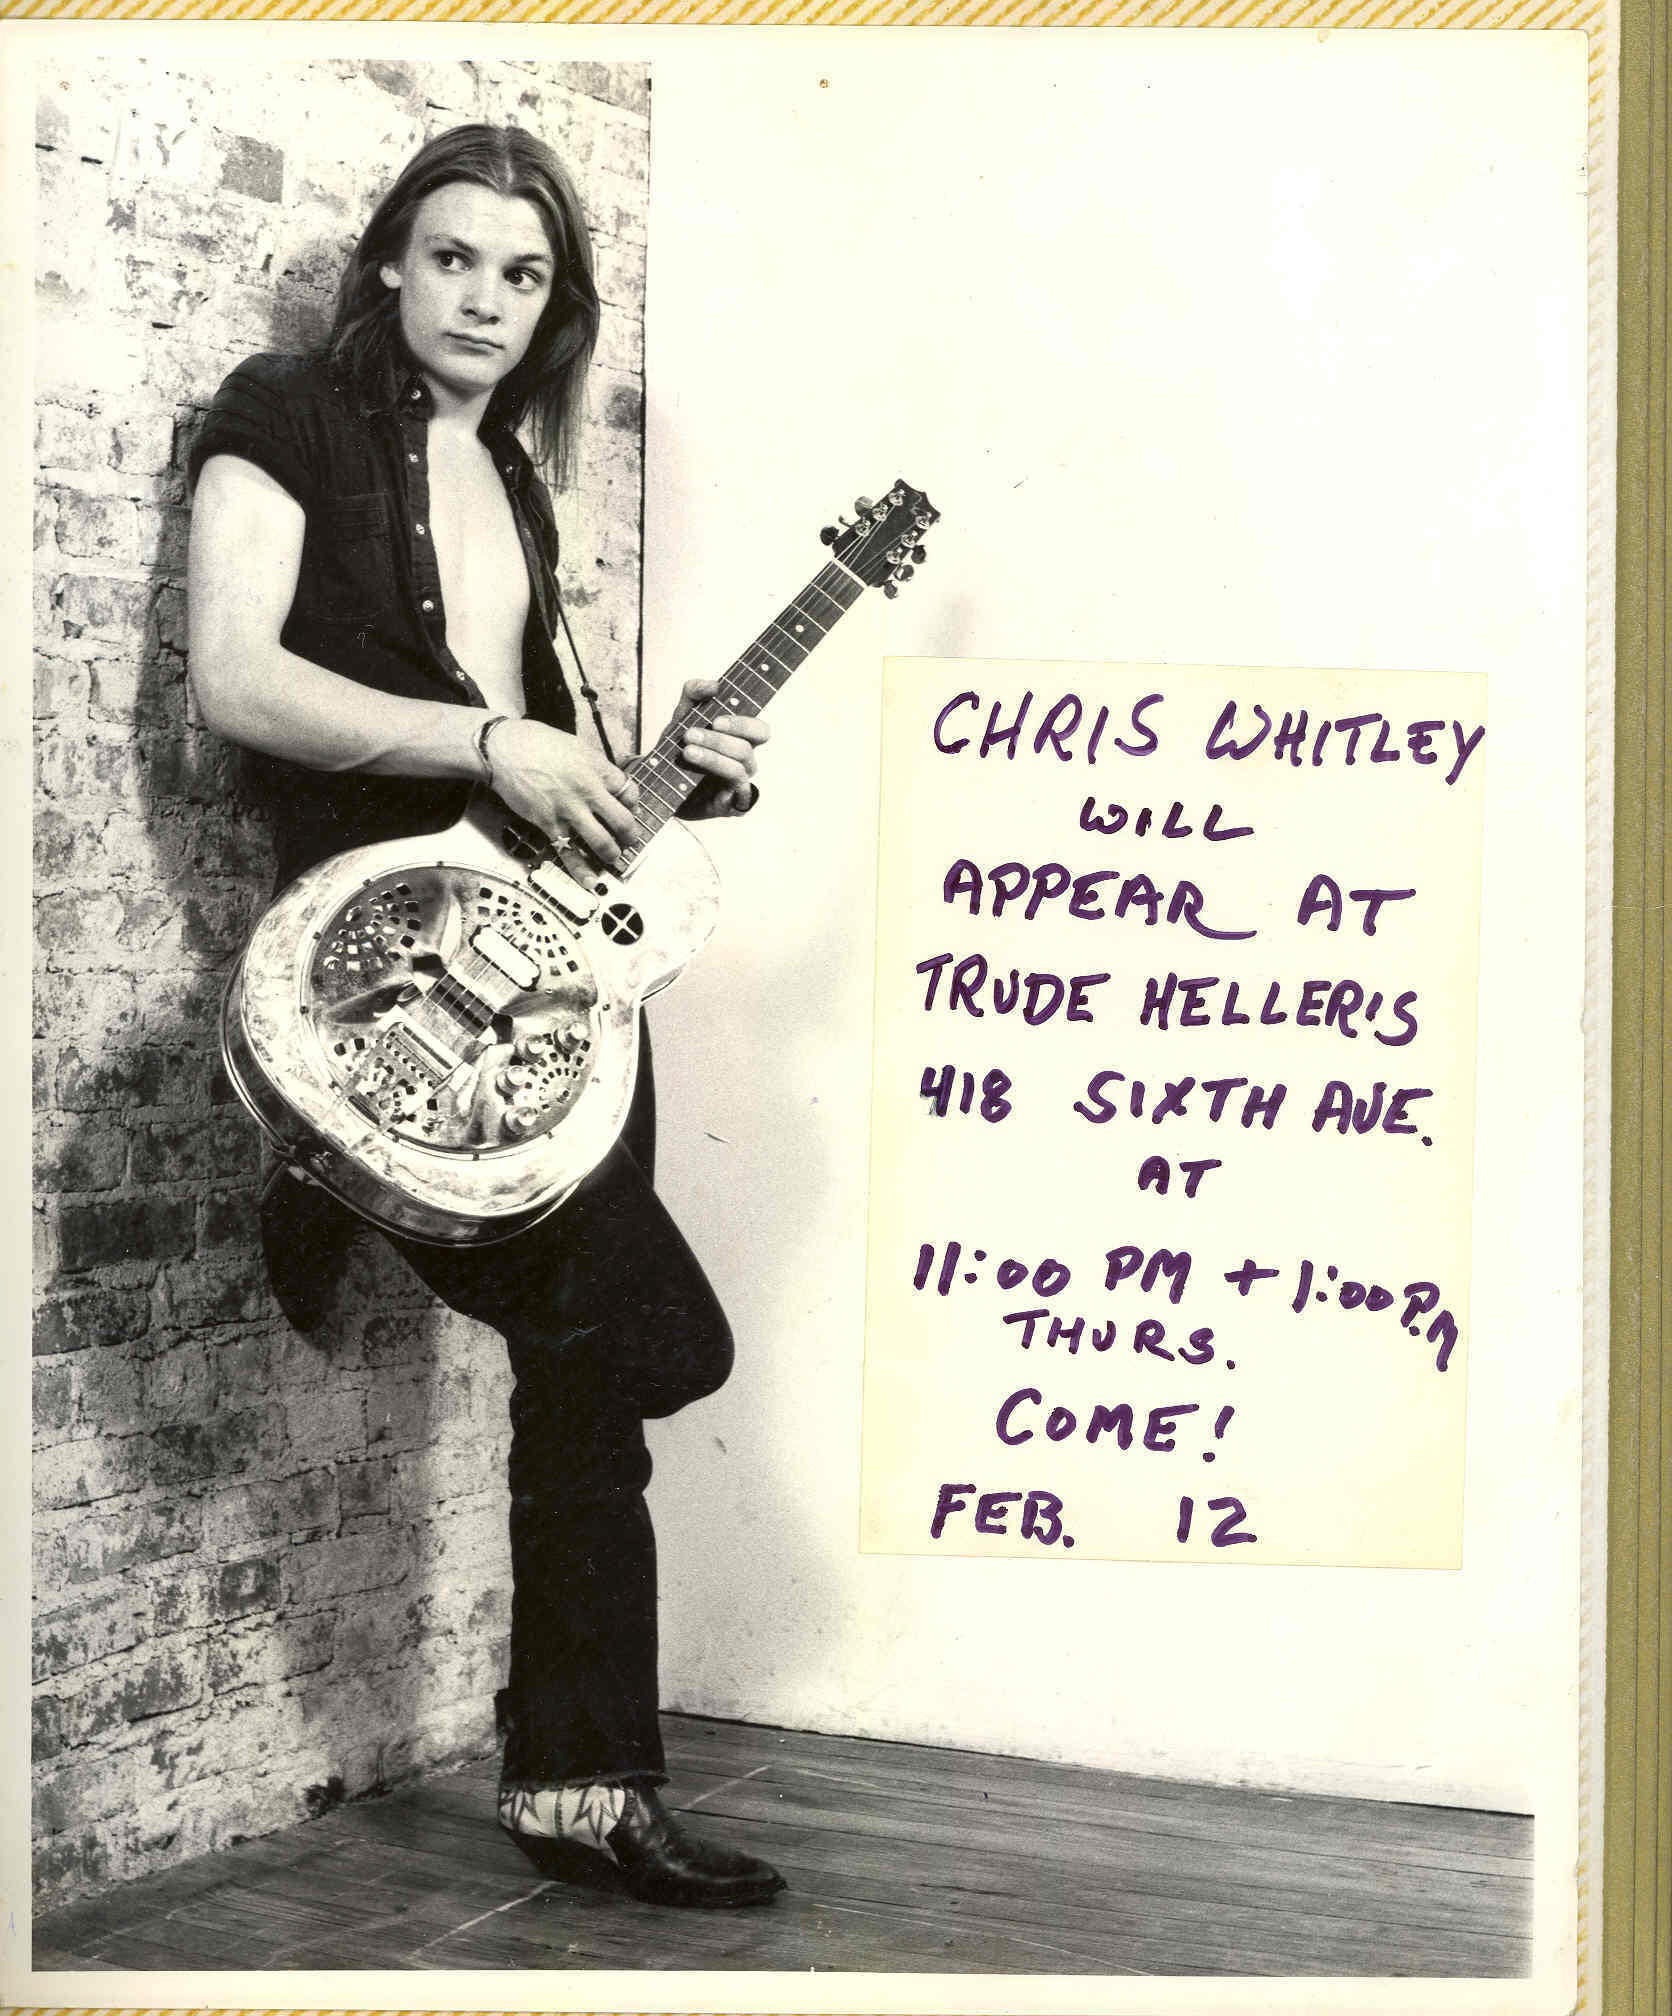 CHRIS WHITLEY
WILL
APPEAR AT
TRUDE HELLER'S
418 SIXTH AVE.
AT
11:00 PM + 1:00 P.M
THURS.
COME!
FEB. 12